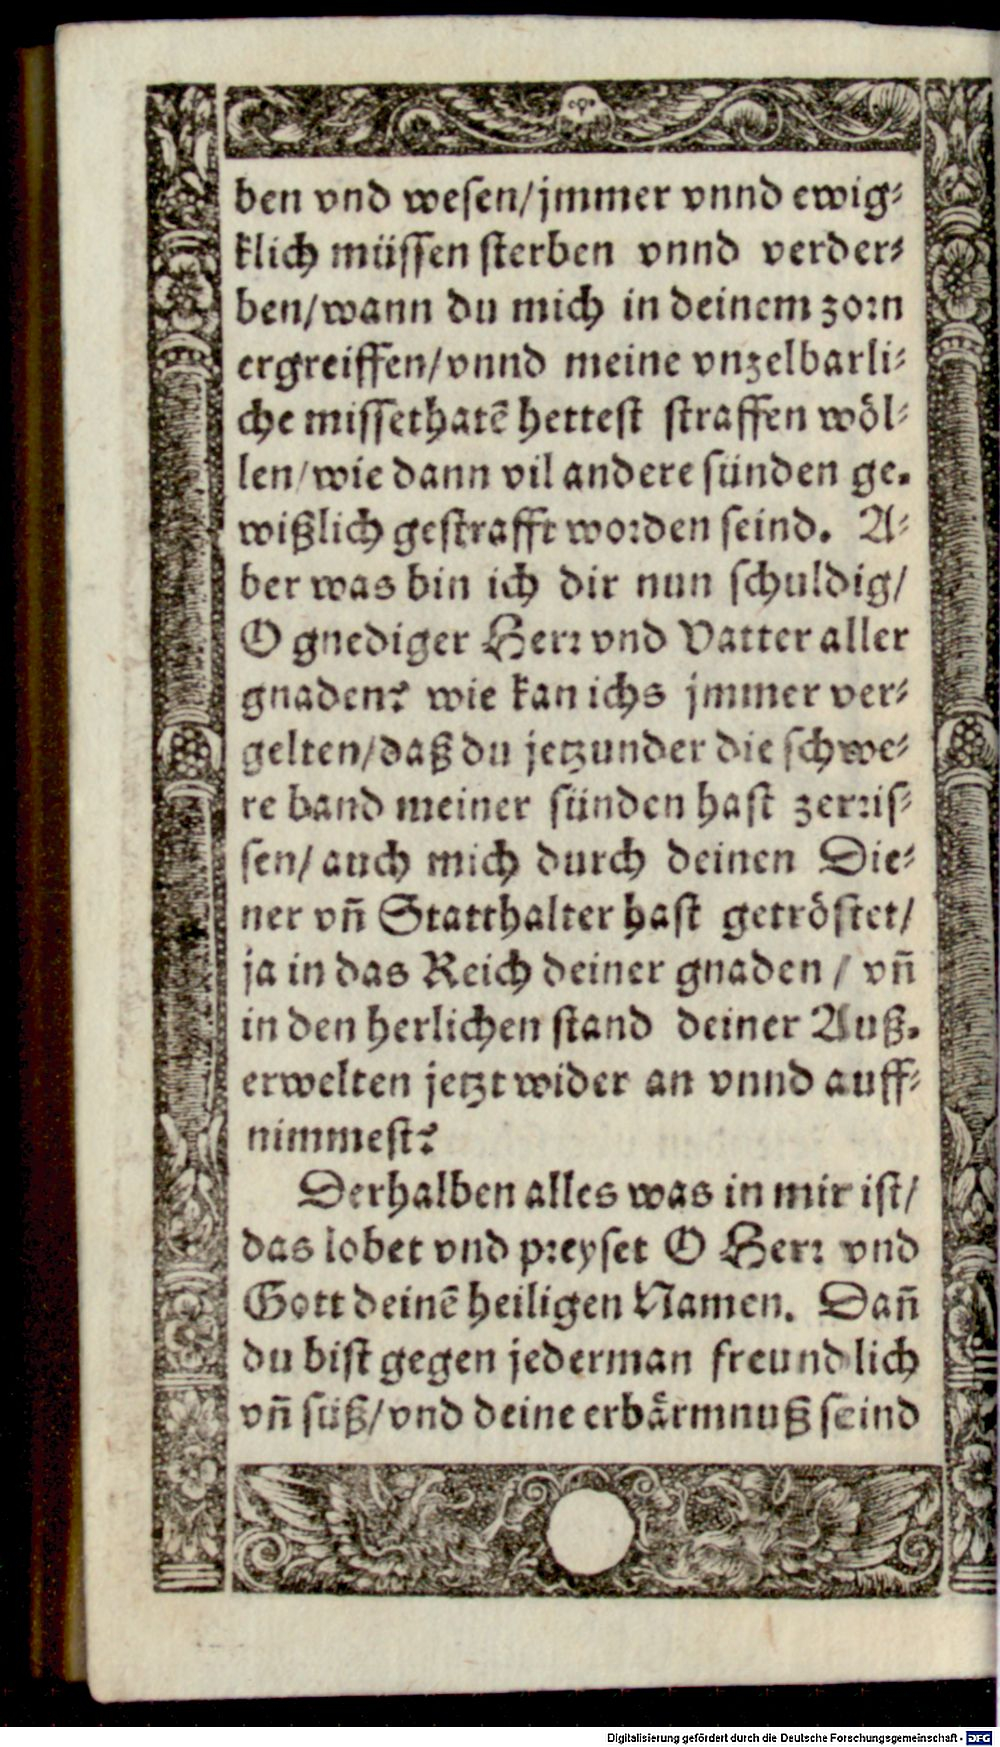 ben vnd wesen/jmmer vnnd ewig⸗
klich müssen sterben vnnd verder⸗
ben/wann du mich in deinem zorn
ergreiffen/vnnd meine vnzelbarli⸗
che missethatẽ hettest straffen wöl⸗
len/wie dann vil andere sünden ge.
wißlich gestrafft worden seind. A⸗
ber was bin ich dir nun schuldig/
O gnediger Herr vnd Vatter aller
gnaden? wie kan ichs jmmer ver⸗
gelten/daß du jetzunder die schwe⸗
re band meiner sünden hast zerris⸗
sen/auch mich durch deinen Die⸗
ner vñ Statthalter hast getröstet/
ja in das Reich deiner gnaden / vñ
in den herlichen stand deiner Auß.
erwelten jetzt wider an vnnd auff⸗
nimmest?
Derhalben alles was in mir ist/
das lobet vnd preyset O Herr vnd
Gott deinẽ heiligen Namen. Dañ
du bist gegen jederman freundlich
vñ süß/vnd deine erbaͤrmnuß seind
Digitalisierung gefördert durch die Deutsche Forschungsgemeinschaft - DFG